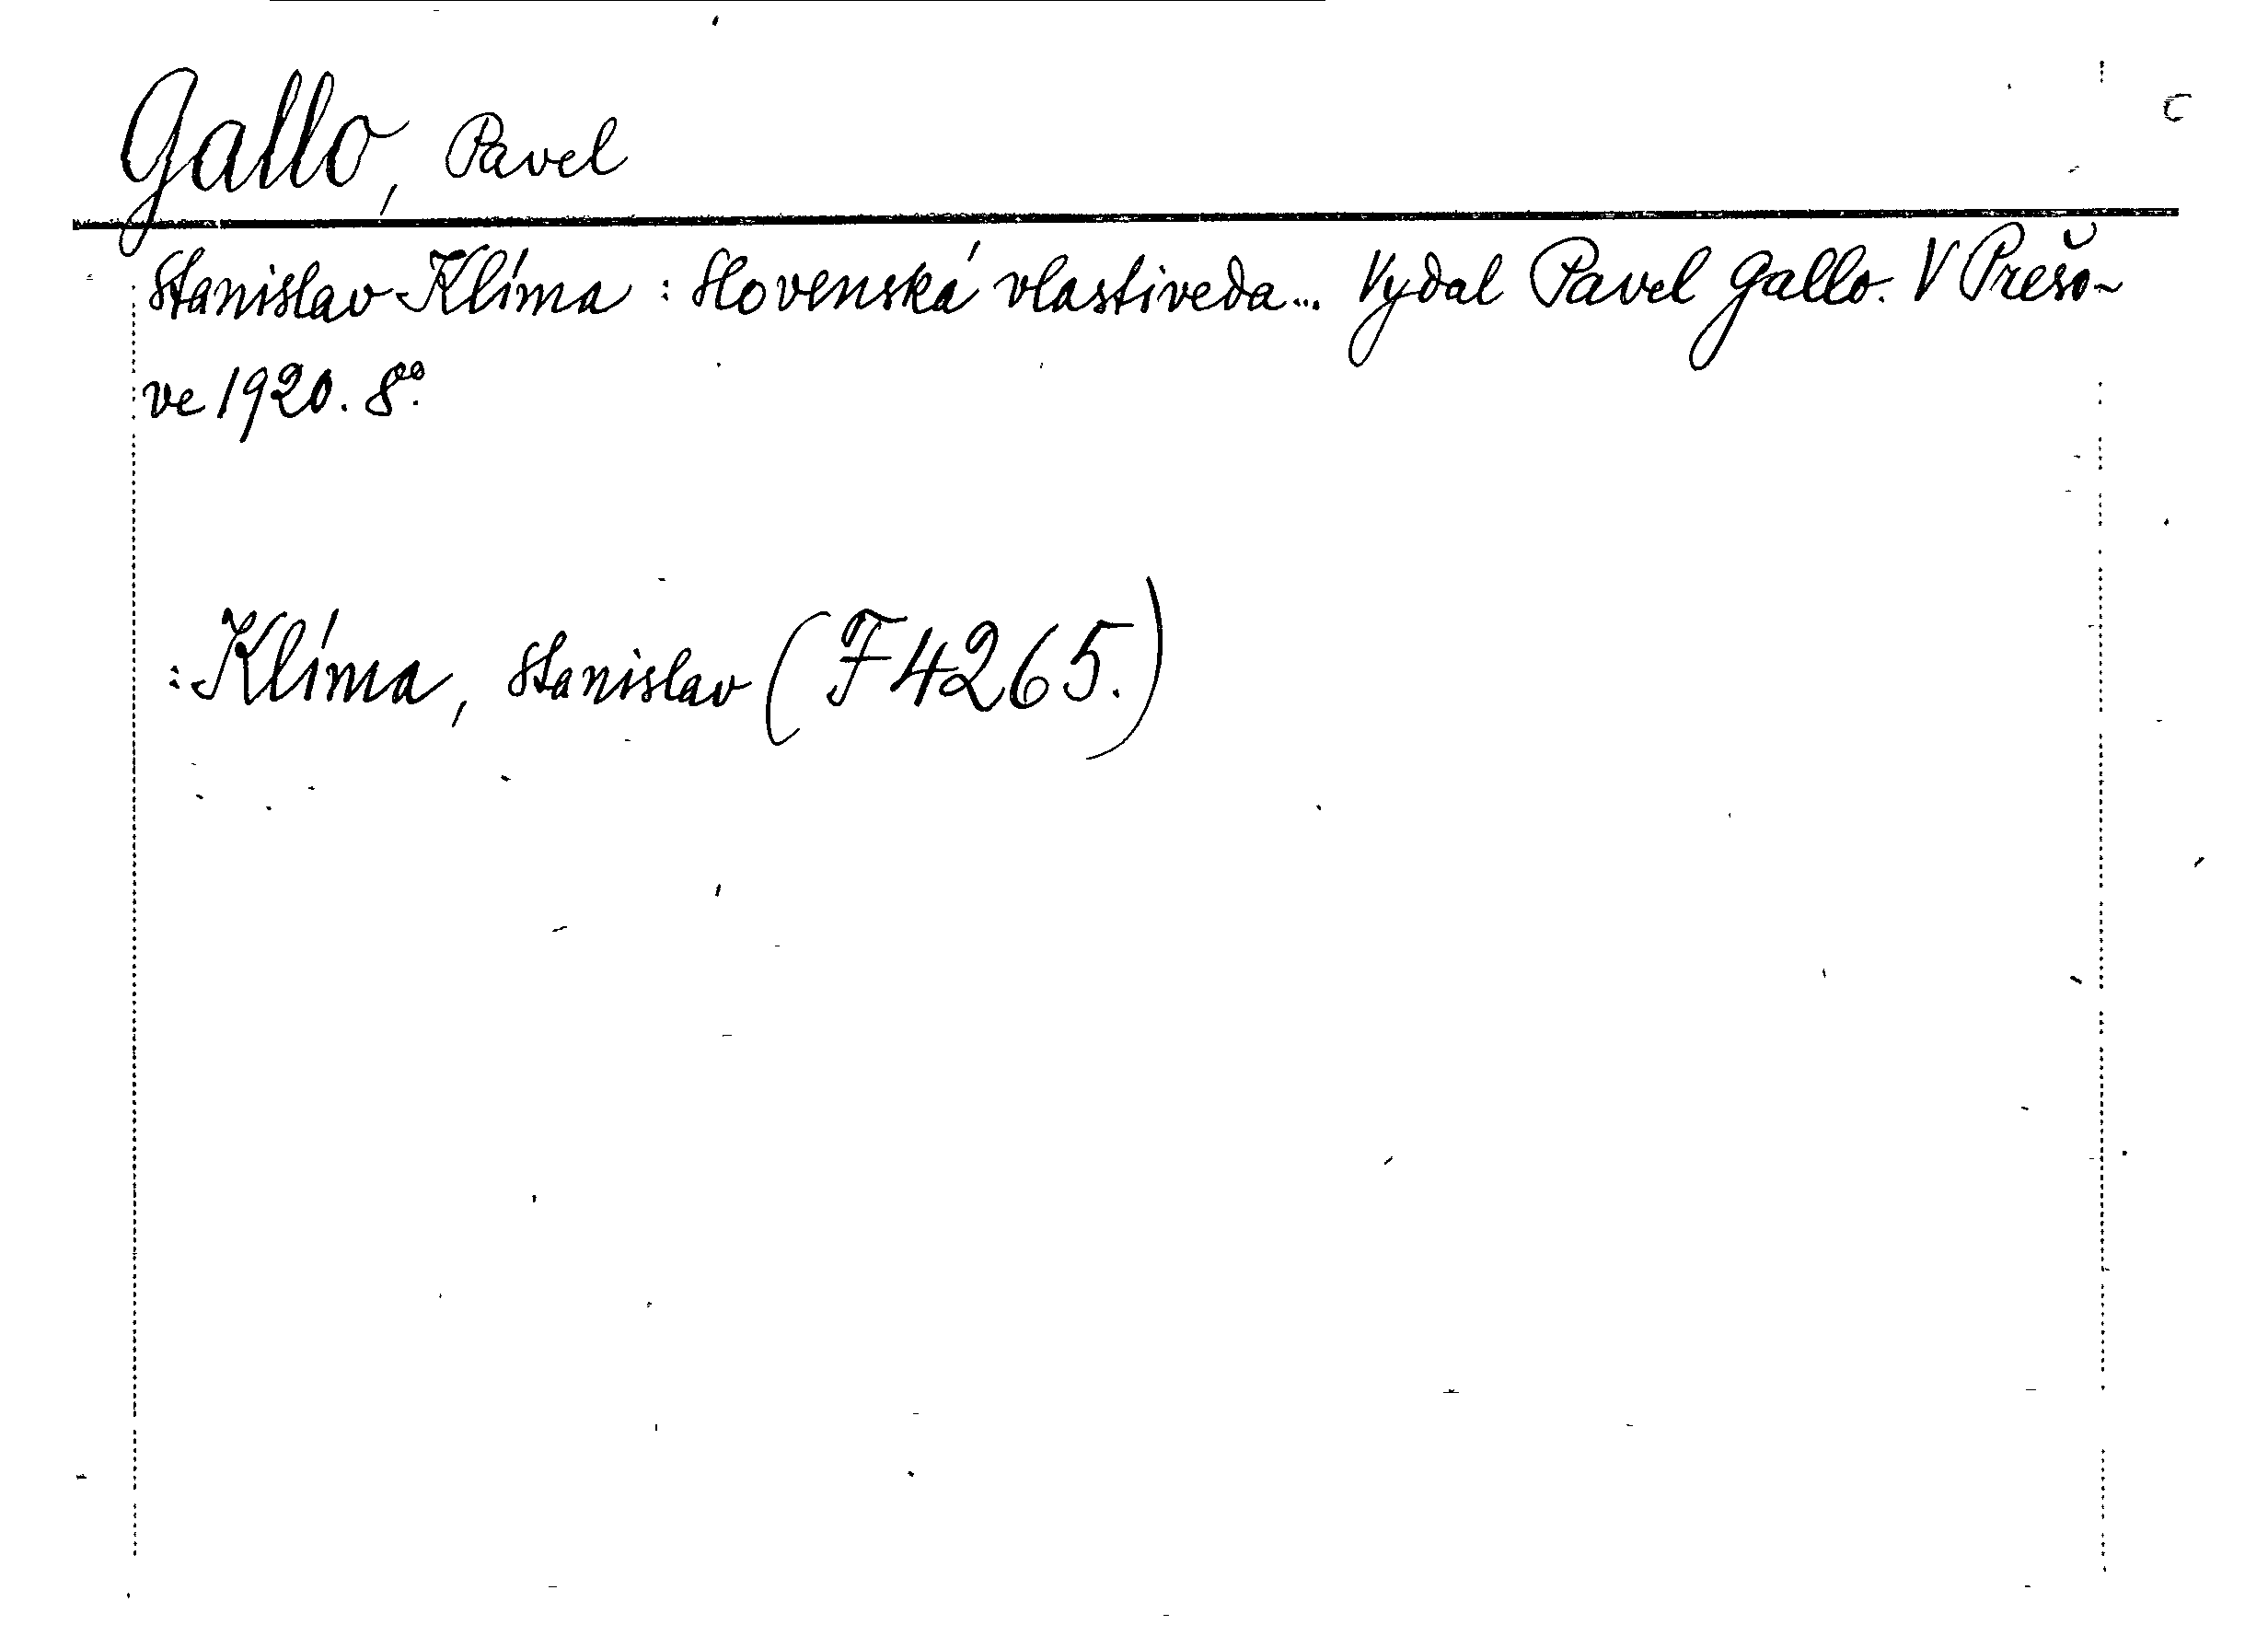 Gallo, Pavel
Stanislav Klíma : Slovenská vlastiveda... Vydal Pavel Gallo. V Prešo-
ve 1920. 8º.
: Klíma, Stanislav (F 4265.)